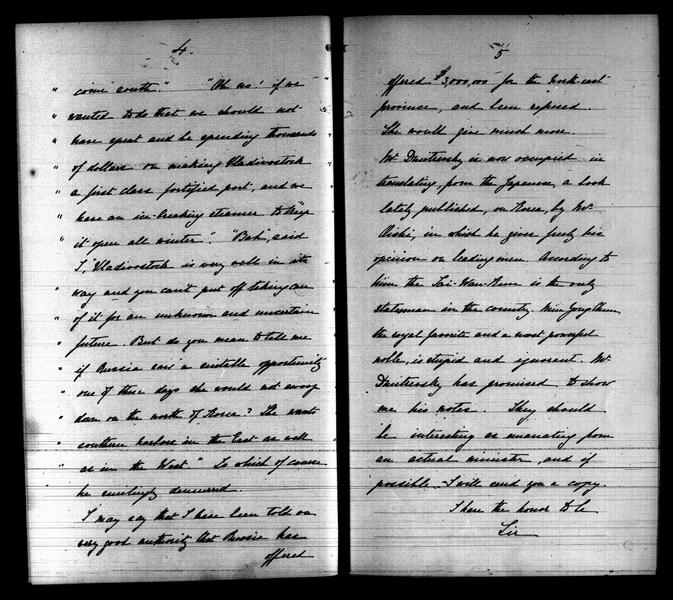 4
" come south." "Oh no! if we "
" wanted to do that we should not
" have spent and be spending thousands
" of dollars on making Vladivostock
" a first class fortified port, and we
" have an ice-breaking steamer to keep
" it open all winter". "Bah", said
" I, "Vladivostock is very well in its
" way and you can't put off taking care
" of it for an unknown and uncertain
" future. But do you mean to tell me
" if Russia saw a suitable opportunity
" one of these days she would not swoop
" down on the north of Korea? She wants
" southern harbors in the East as well
" as in the West." To which of course
he smilingly demurred.
I may say that I have been told on
very good authority that Russia has
offered
5
offered $3,000,000 for the North-east
province, and been refused.
She would give much more.
Mr Dmitrevsky is now occupied in
translating, from the Japanese, a book
lately published, on Korea, by Mr
Oishi, in which he gives freely his
opinion on leading men. According to
him the Tai-Wan-Kun is the only
statesman in the country. Min Yong Chun,
the royal favorite and a most powerful
noble, is stupid and ignorant. Mr
Dmitrevsky has promised to show
me his notes. They should
be interesting as emanating from
an actual minister, and if
possible I will send you a copy.
I have the honor to be
Sir